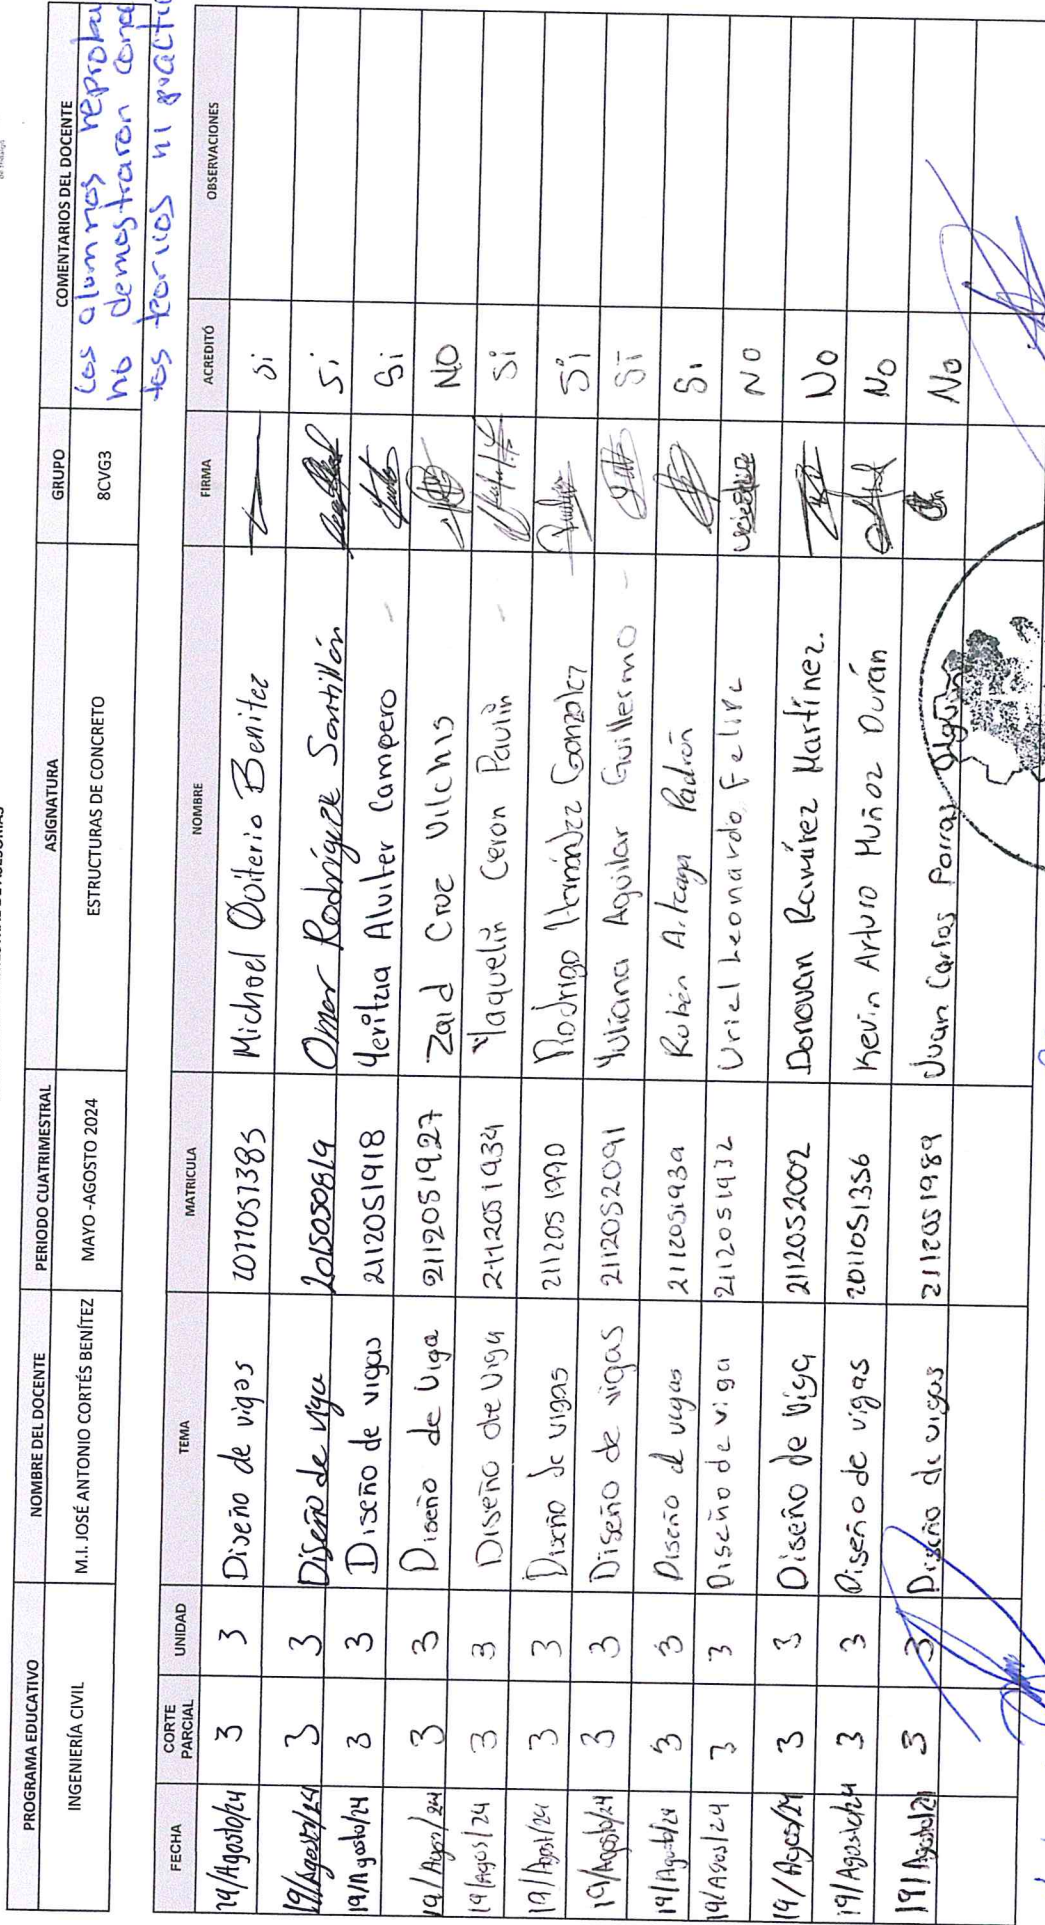 PROGRAMA EDUCATIVO NOMBRE DEL DOCENTE PERIODO CUATRIMESTRAL ASIGNATURA GRUPO COMENTARIOS DEL DOCENTE
INGENIERÍA CIVIL M.I. JOSÉ ANTONIO CORTÉS BENÍTEZ MAYO -AGOSTO 2024 ESTRUCTURAS DE CONCRETO 8CVG3
Los alumnos reproba
no demostraron cono
tos teoricos ni practi
FECHA CORTE PARCIAL UNIDAD TEMA MATRICULA NOMBRE FIRMA ACREDITÓ OBSERVACIONES
19/Agosto/24 3 3 Diseño de vigas Michael Quiterio Benitez Si
19/Agosto/24 3 3 Diseño de viga Omar Rodríguez Santillán Si
19/Agosto/24 3 3 Diseño de vigas 2112051918 Yeritzia Aluiter Campero Si
19/Agos/24 3 3 Diseño de Viga 2112051927 Zaid Cruz Vilchis NO
19/Agos/24 3 3 Diseño de Viga 2112051934 Yaquelin Ceron Paulin Si
19/Agost/24 3 3 Diseño de vigas 2112051990 Rodrigo Hernández Gonzalez Si
19/Agosto/24 3 3 Diseño de vigas 2112052091 Yuliana Aguilar Guillermo Si
19/Agosto/24 3 3 Diseño d vigas 2112051939 Rubén Arteaga Padrón Si
19/Agos/24 3 3 Diseño de viga 2112051932 Uriel Leonardo Felipe NO
19/Agos/24 3 3 Diseño de Viga 2112052002 Donovan Ramírez Martínez. No
19/Agosto/24 3 3 Diseño de vigas 2011051356 Kevin Arturo Muñoz Durán No
19/Agosto/24 3 3 Diseño de vigas 2112051989 Juan Carlos Porras No